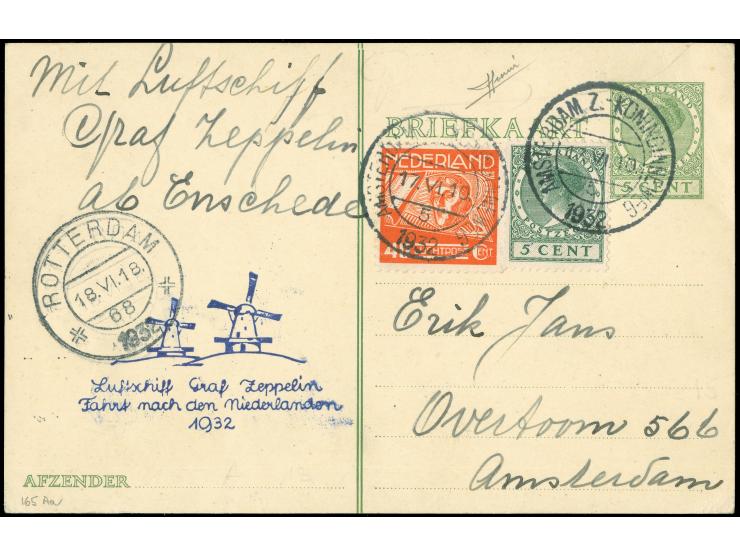 Mit Luftschiff
Graf Zeppelin
ab Enschede
BRIEFKAART
NEDERLAND
5 CENT
AMSTERDAM Z.-KONINGINNEWEG
5
1932
17.VI.19.
5
1932
NEDERLAND
40
CENT
5 CENT
ROTTERDAM
18.VI.18.
68
1932
Luftschiff Graf Zeppelin
Fahrt nach den Niederlanden
1932
Erik Jans
Overtoom 566
Amsterdam
AFZENDER
165 Aa